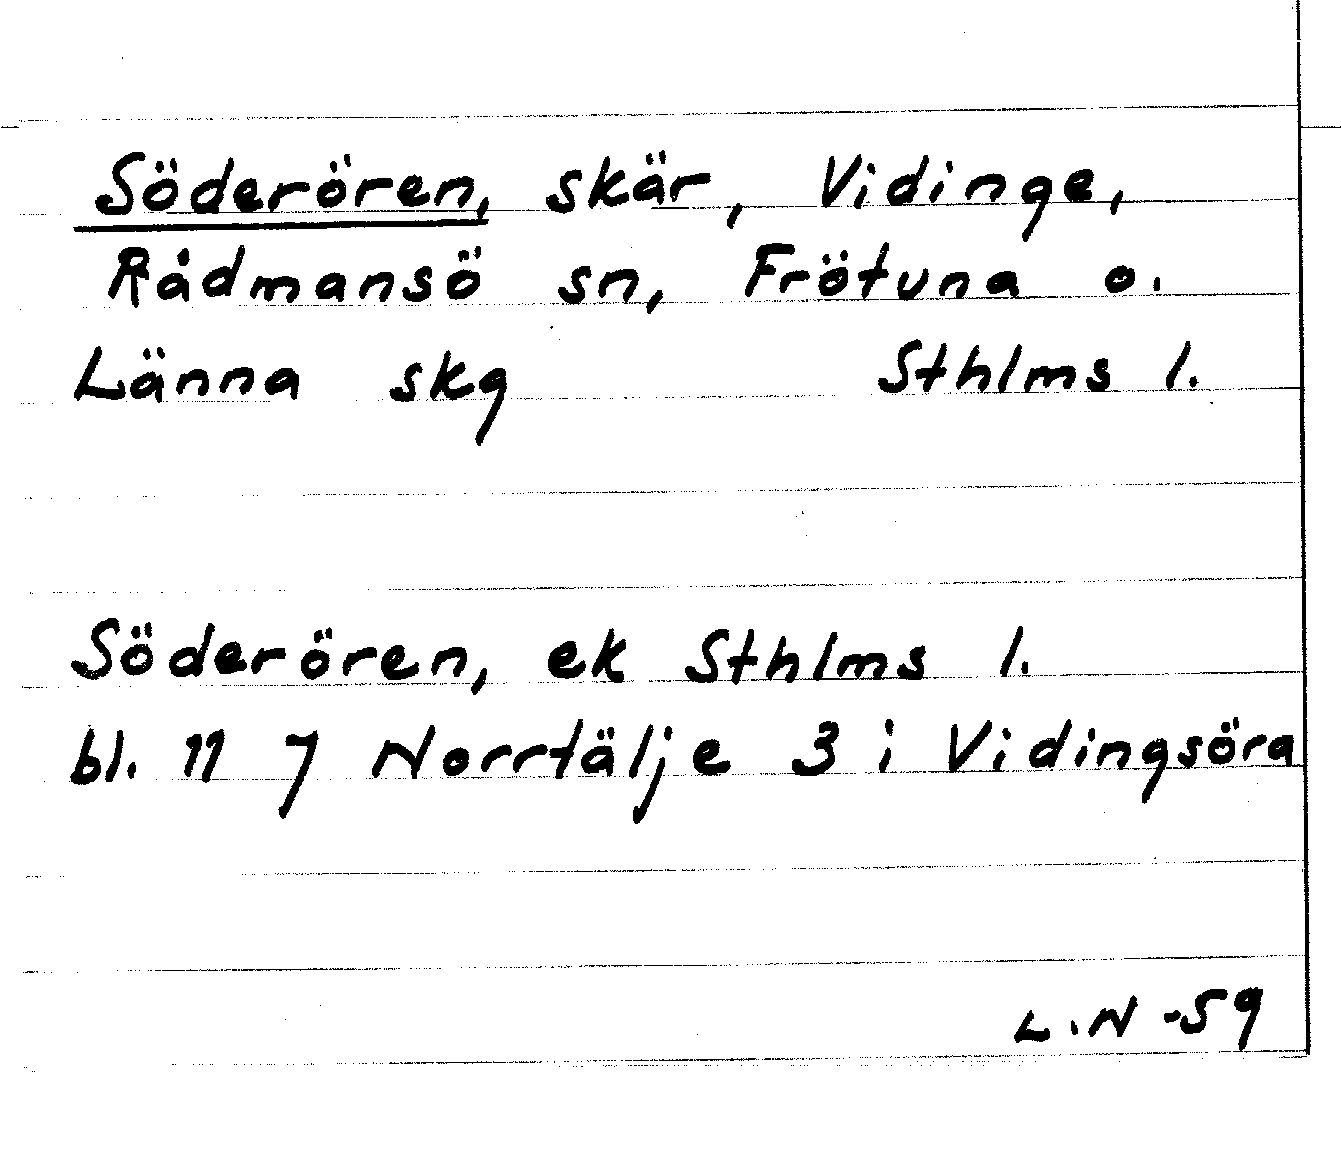 Söderören, skär, Vidinge,
Rådmansö sn, Frötuna o.
Länna skg Sthlms l.
Söderören, ek Sthlms l.
bl. 11 7 Norrtälje 3 i Vidingsöra
L.N -59